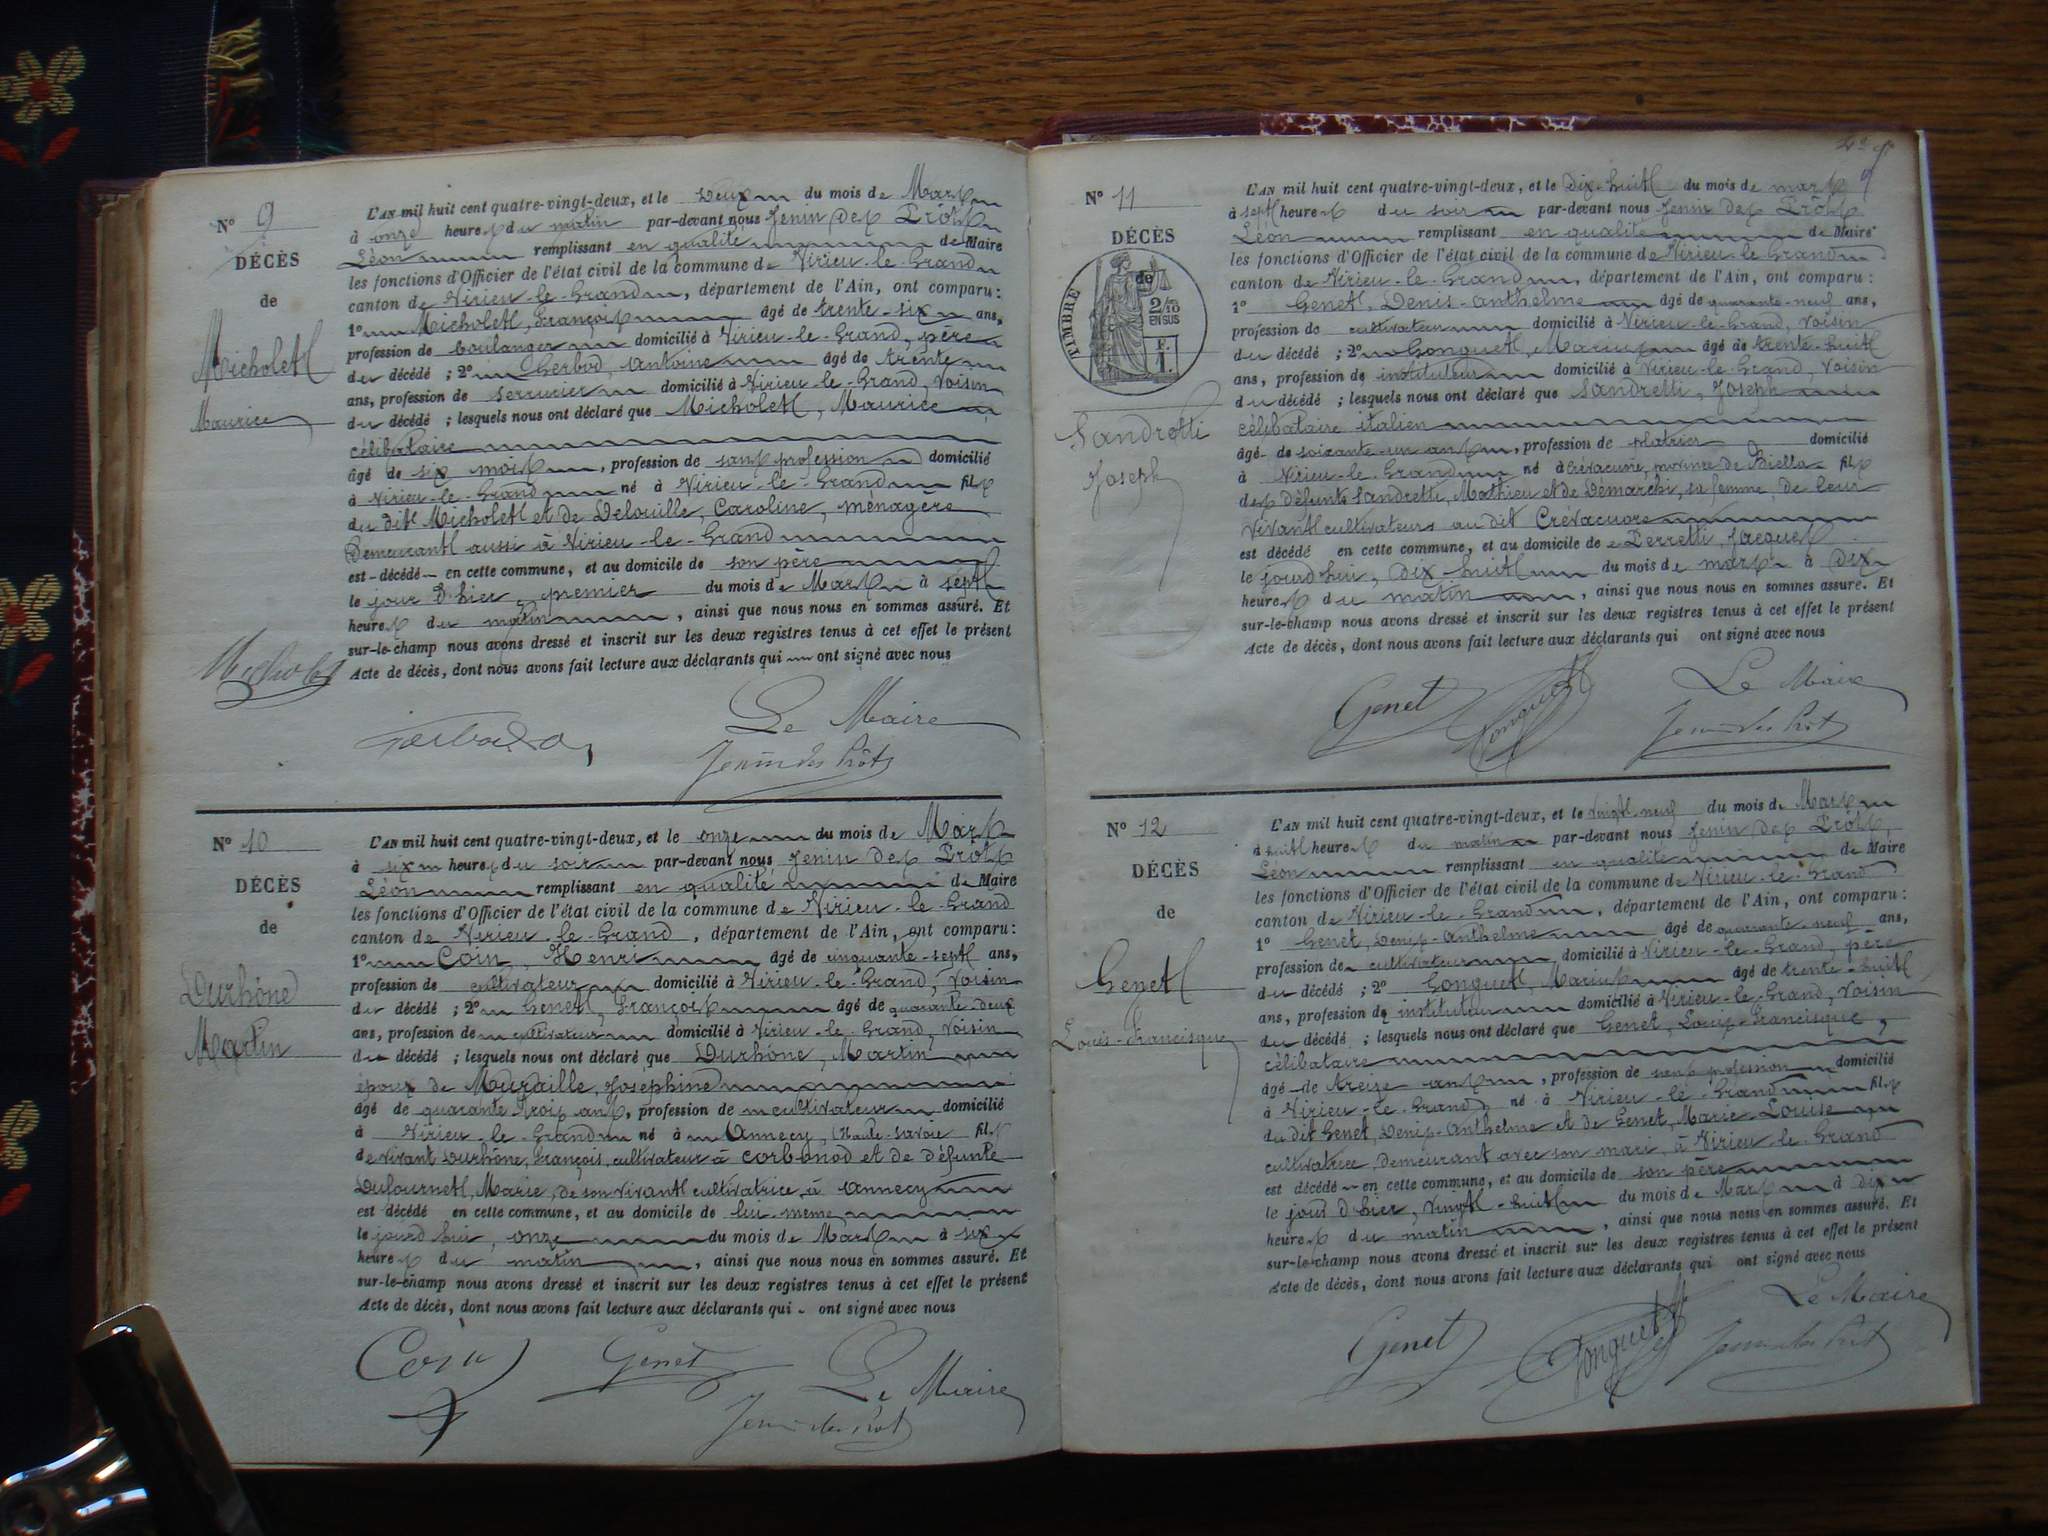 N° 9
DÉCÈS
de
Micholet
Maurice
L'AN mil huit cent quatre-vingt-deux, et le deux du mois de Mars
à onze heures du matin par-devant nous Jenin des Prôts
Léon remplissant en qualité de Maire
les fonctions d'Officier de l'état civil de la commune de Virieu-le-Grand
canton de Virieu-le-Grand, département de l'Ain, ont comparu :
1° Micholet, François âgé de trente-six ans,
profession de boulanger domicilié à Virieu-le-Grand, père
du décédé ; 2° Gerbod, Antoine âgé de trente
ans, profession de serrurier domicilié à Virieu-le-Grand, voisin
du décédé ; lesquels nous ont déclaré que Micholet, Maurice
célibataire
âgé de six mois, profession de sans profession domicilié
à Virieu-le-Grand né à Virieu-le-Grand fils
du dit Micholet et de Delouille, Caroline, ménagère
demeurant aussi à Virieu-le-Grand
est décédé en cette commune, et au domicile de son père
le jour d'hier, premier du mois de Mars à sept
heures du matin, ainsi que nous nous en sommes assuré. Et
sur-le-champ nous avons dressé et inscrit sur les deux registres tenus à cet effet le présent
Acte de décès, dont nous avons fait lecture aux déclarants qui ont signé avec nous
Micholet
Le Maire
Jenin des Prôts
N° 10
DÉCÈS
de
Durhône
Martin
L'AN mil huit cent quatre-vingt-deux, et le onze du mois de Mars
à six heures du soir par-devant nous Jenin des Prôts
Léon remplissant en qualité de Maire
les fonctions d'Officier de l'état civil de la commune de Virieu-le-Grand
canton de Virieu-le-Grand, département de l'Ain, ont comparu :
1° Coin, Henri âgé de cinquante-sept ans,
profession de cultivateur domicilié à Virieu-le-Grand, voisin
du décédé ; 2° Genet, François âgé de quarante-deux
ans, profession de cultivateur domicilié à Virieu-le-Grand, voisin
du décédé ; lesquels nous ont déclaré que Durhône, Martin
époux de Muraille, Joséphine
âgé de quarante trois ans, profession de cultivateur domicilié
à Virieu-le-Grand né à Annecy, Haute-Savoie fils
de vivant Durhône, François, cultivateur à Corbonod et de défunte
Dufournet, Marie, de son vivant cultivatrice à Annecy
est décédé en cette commune, et au domicile de lui-même
le jourd'hui, onze du mois de Mars à six
heures du matin, ainsi que nous nous en sommes assuré. Et
sur-le-champ nous avons dressé et inscrit sur les deux registres tenus à cet effet le présent
Acte de décès, dont nous avons fait lecture aux déclarants qui ont signé avec nous
Coin Genet Le Maire
Jenin des Prôts
N° 11
DÉCÈS
de
TIMBRE
2/10
EN SUS
F.
1.
Sandretti
Joseph
L'AN mil huit cent quatre-vingt-deux, et le dix-huit du mois de mars
à sept heures du soir par-devant nous Jenin des Prôts
Léon remplissant en qualité de Maire
les fonctions d'Officier de l'état civil de la commune de Virieu-le-Grand
canton de Virieu-le-Grand, département de l'Ain, ont comparu :
1° Genet, Denis-Anthelme âgé de quarante-neuf ans,
profession de cultivateur domicilié à Virieu-le-Grand, voisin
du décédé ; 2° Gonguet, Marius âgé de trente-huit
ans, profession de instituteur domicilié à Virieu-le-Grand, voisin
du décédé ; lesquels nous ont déclaré que Sandretti, Joseph
célibataire italien
âgé de soixante-un ans, profession de plâtrier domicilié
à Virieu-le-Grand né à Crévacuore, province de Biella fils
des défunts Sandretti, Mathieu et de Démarchi, sa femme, de leur
vivant cultivateurs au dit Crévacuore
est décédé en cette commune, et au domicile de Perretti, Jacques
le jourd'hui, dix huit du mois de mars à dix
heures du matin, ainsi que nous nous en sommes assuré. Et
sur-le-champ nous avons dressé et inscrit sur les deux registres tenus à cet effet le présent
Acte de décès, dont nous avons fait lecture aux déclarants qui ont signé avec nous
Genet Gonguet Le Maire
Jenin des Prôts
N° 12
DÉCÈS
de
Genet
Louis-Francisque
L'AN mil huit cent quatre-vingt-deux, et le vingt neuf du mois de Mars
à huit heures du matin par-devant nous Jenin des Prôts,
Léon remplissant en qualité de Maire
les fonctions d'Officier de l'état civil de la commune de Virieu-le-Grand
canton de Virieu-le-Grand, département de l'Ain, ont comparu :
1° Genet, Denis-Anthelme âgé de quarante-neuf ans,
profession de cultivateur domicilié à Virieu-le-Grand, père
du décédé ; 2° Gonguet, Marius âgé de trente-huit
ans, profession de instituteur domicilié à Virieu-le-Grand, voisin
du décédé ; lesquels nous ont déclaré que Genet, Louis-Francisque,
célibataire
âgé de treize ans, profession de sans profession domicilié
à Virieu-le-Grand né à Virieu-le-Grand fils
du dit Genet, Denis-Anthelme et de Genet, Marie-Louise
cultivatrice, demeurant avec son mari, à Virieu-le-Grand
est décédé en cette commune, et au domicile de son père
le jour d'hier, vingt-huit du mois de Mars à dix
heures du matin, ainsi que nous nous en sommes assuré. Et
sur-le-champ nous avons dressé et inscrit sur les deux registres tenus à cet effet le présent
Acte de décès, dont nous avons fait lecture aux déclarants qui ont signé avec nous
Genet Gonguet Le Maire
Jenin des Prôts